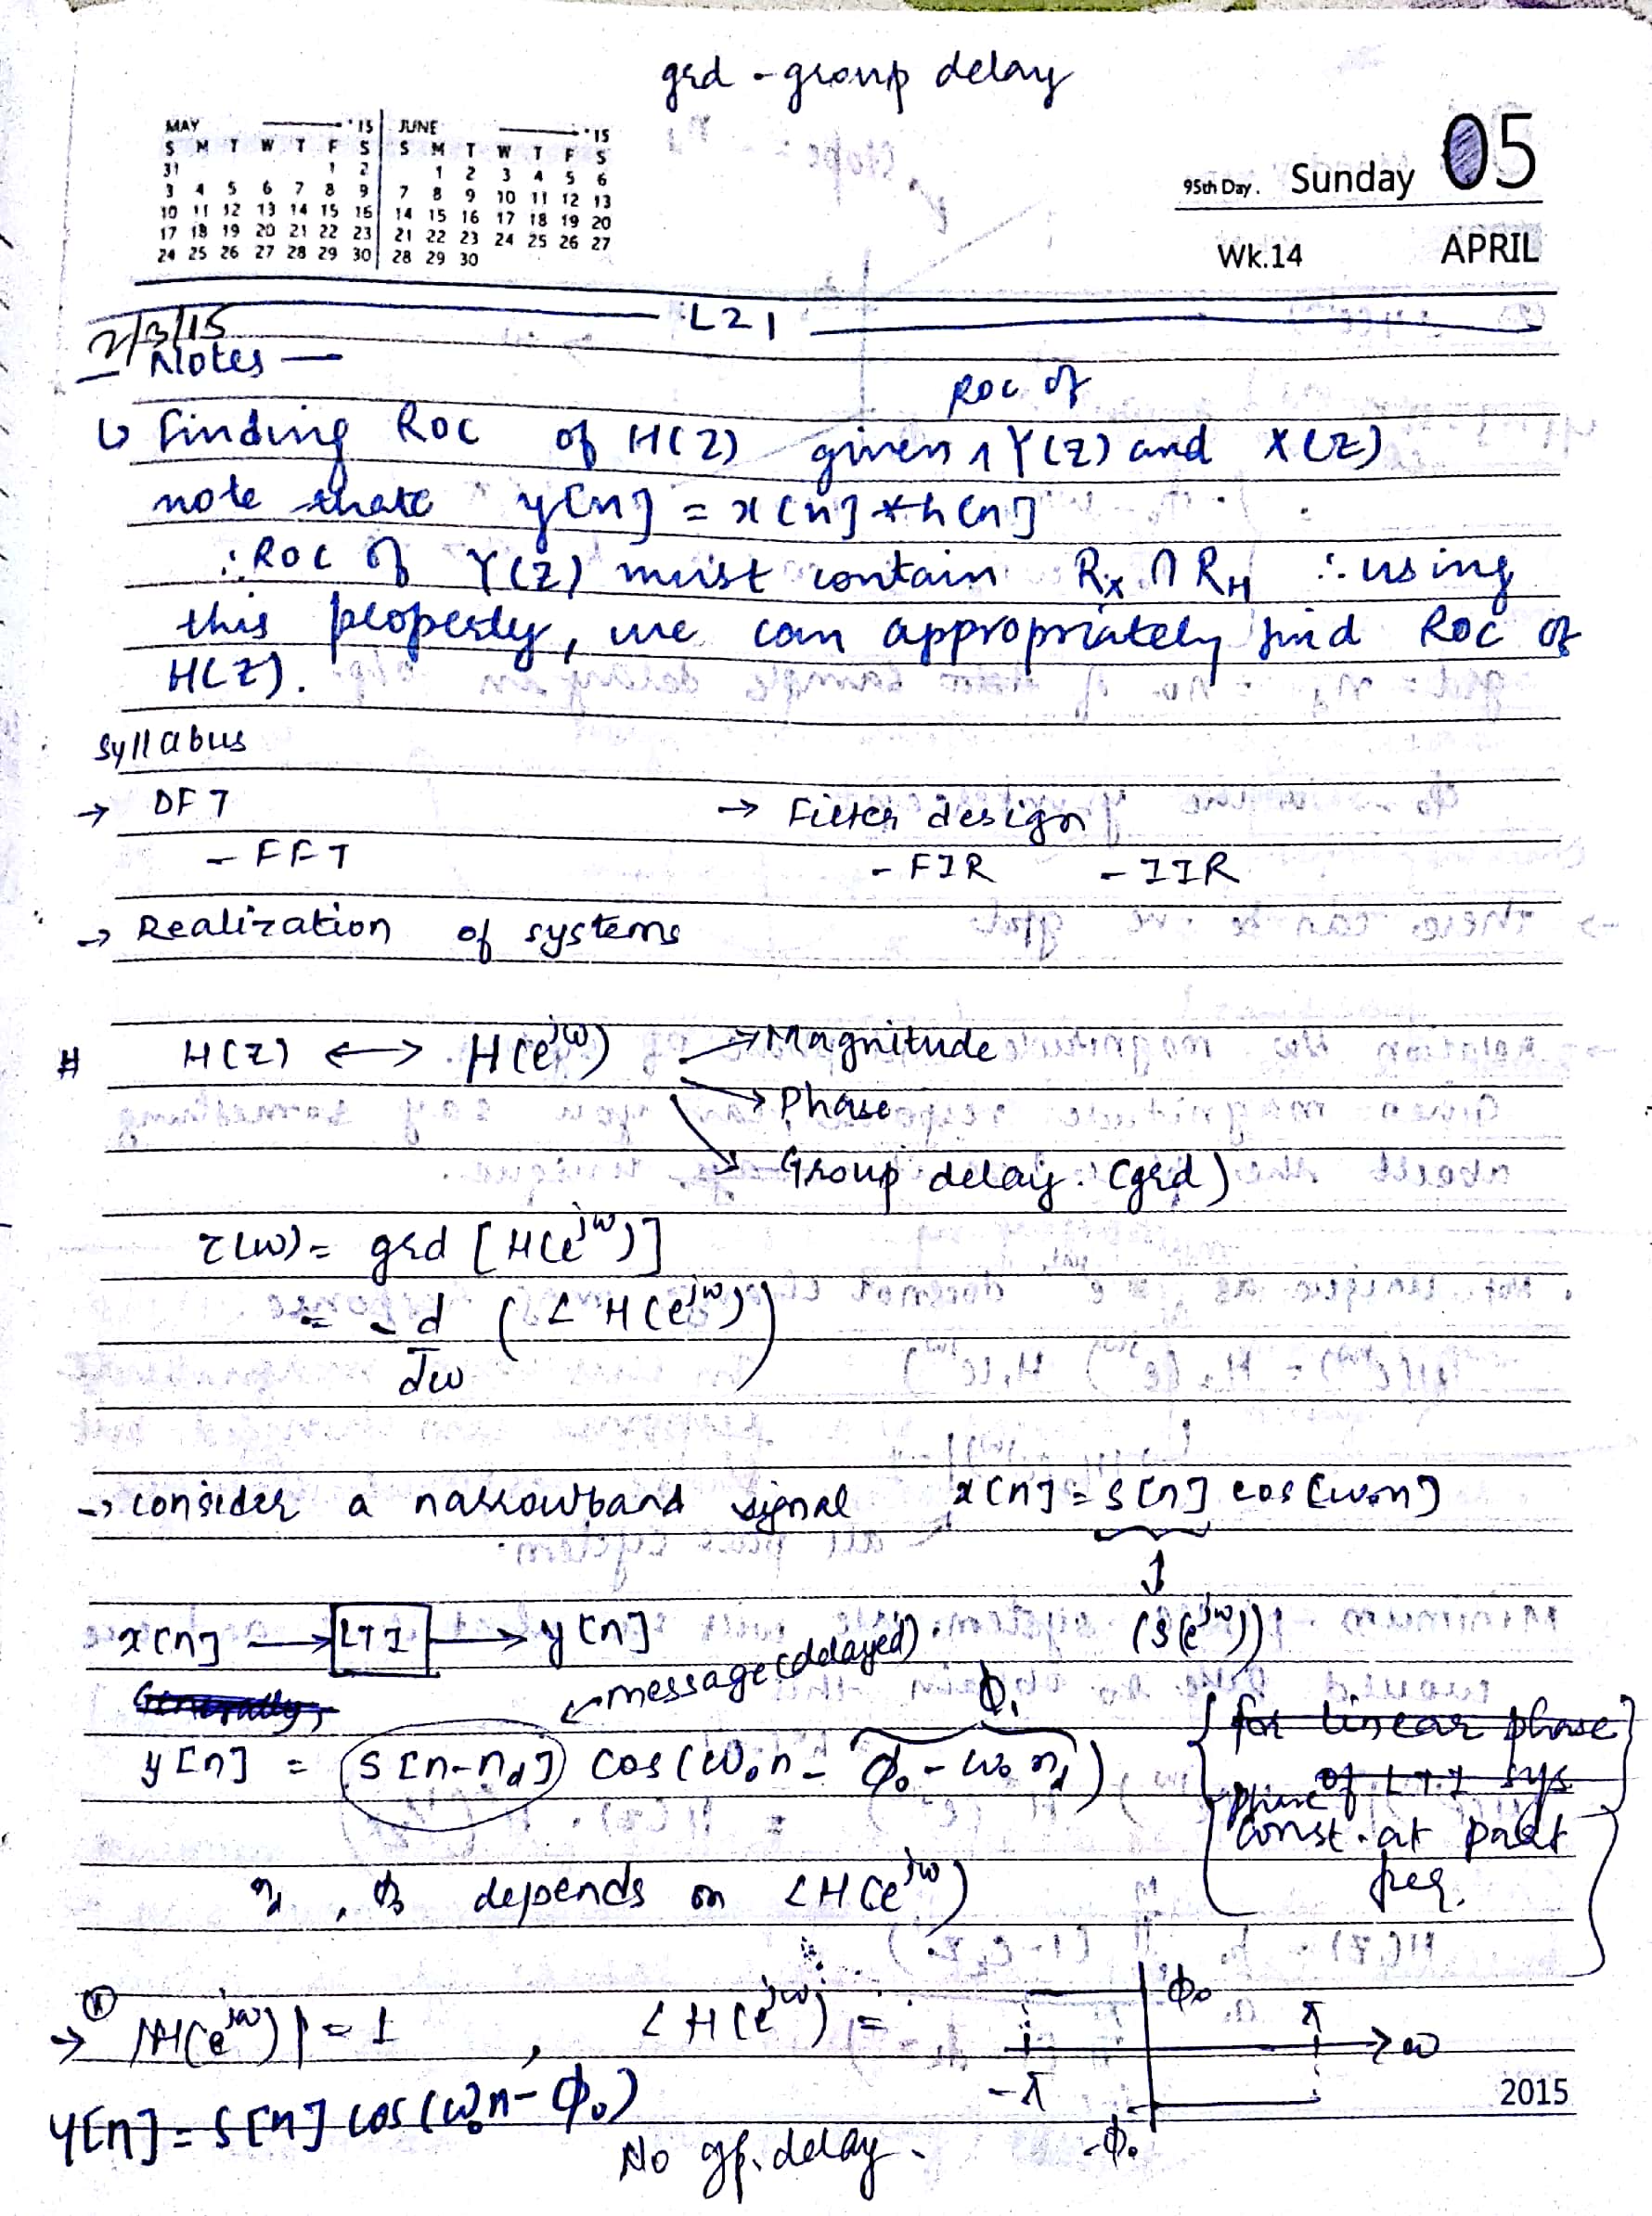 grd - group delay
MAY '15 JUNE '15
S M T W T F S S M T W T F S
31 1 2 1 2 3 4 5 6
3 4 5 6 7 8 9 7 8 9 10 11 12 13
10 11 12 13 14 15 16 14 15 16 17 18 19 20
17 18 19 20 21 22 23 21 22 23 24 25 26 27
24 25 26 27 28 29 30 28 29 30
95th Day. Sunday 05
Wk.14 APRIL
L21
2/3/15
Notes —
ROC of
↳ Finding ROC of H(z) given ∧ Y(z) and X(z)
note that y[n] = x[n] * h[n]
∴ ROC of Y(z) must contain Rx ∩ RH ∴ using
this property, we can appropriately find ROC of
H(z).
Syllabus
→ DFT → Filter design
- FFT - FIR - IIR
→ Realization of systems
# H(z) ↔ H(e^jω) → Magnitude
→ Phase
→ Group delay. (grd)
τ(ω) = grd [H(e^jω)]
= -d/dω (∠H(e^jω))
→ consider a narrowband signal x[n] = s[n] cos[ω₀n]
↕
x[n] → LTI → y[n] (S(e^jω))
Generally, message (delayed)
ϕ₁
y[n] = s[n-n_d] cos(ω₀n - ϕ₀ - ω₀n_d)
{for linear phase
of LTI sys
phase of
const. at
freq.
n_d, depends on ∠H(e^jω)
→ |H(e^jω)| = 1, ∠H(e^jω) =
ϕ₀
π
ω
-π
-ϕ₀
y[n] = s[n] cos(ω₀n - ϕ₀)
No gp. delay.
2015